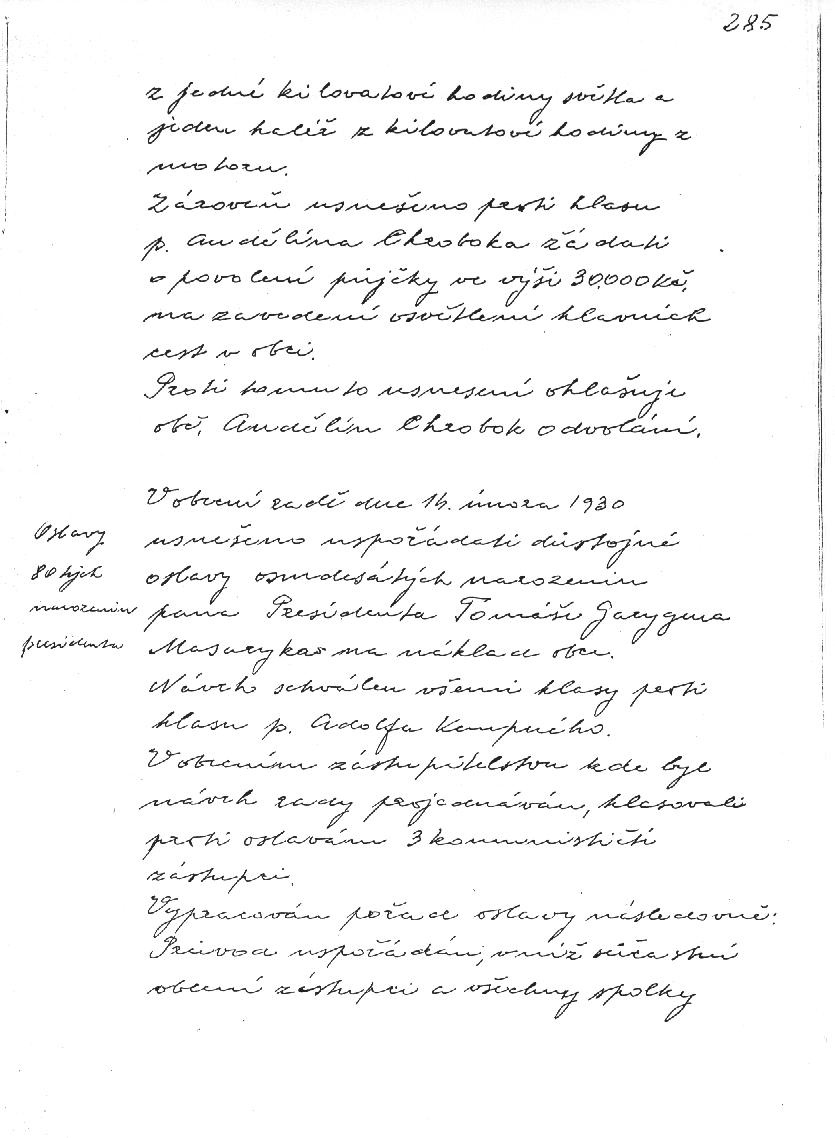 285
z jedné kilovatové hodiny světla a
jeden haléř z kilovatové hodiny z
motoru.
Zároveň usnešeno proti hlasu
p. Andělína Chroboka žádati
o povolení půjčky ve výši 30.000 Kč,
na zavedení osvětlení hlavních
cest v obci.
Proti tomuto usnesení ohlašuje
obč. Andělín Chrobok odvolání.
V obecní radě dne 14. února 1930
usnešeno uspořádati důstojné
oslavy osmdesátých narozenin
pana Presidenta Tomáše Garygma
Masaryka na náklad obce.
Oslavy
80 tých
narozenin
presidenta
Návrh schválen všemi hlasy proti
hlasu p. Adolfa Kempného.
V obecním zástupitelstvu kde byl
návrh rady projednáván, hlasovali
proti oslavám 3 komunističtí
zástupci.
Vypracován pořad oslavy následovně:
Průvod uspořádán, v níž súčastní
obecní zástupci a všechny spolky